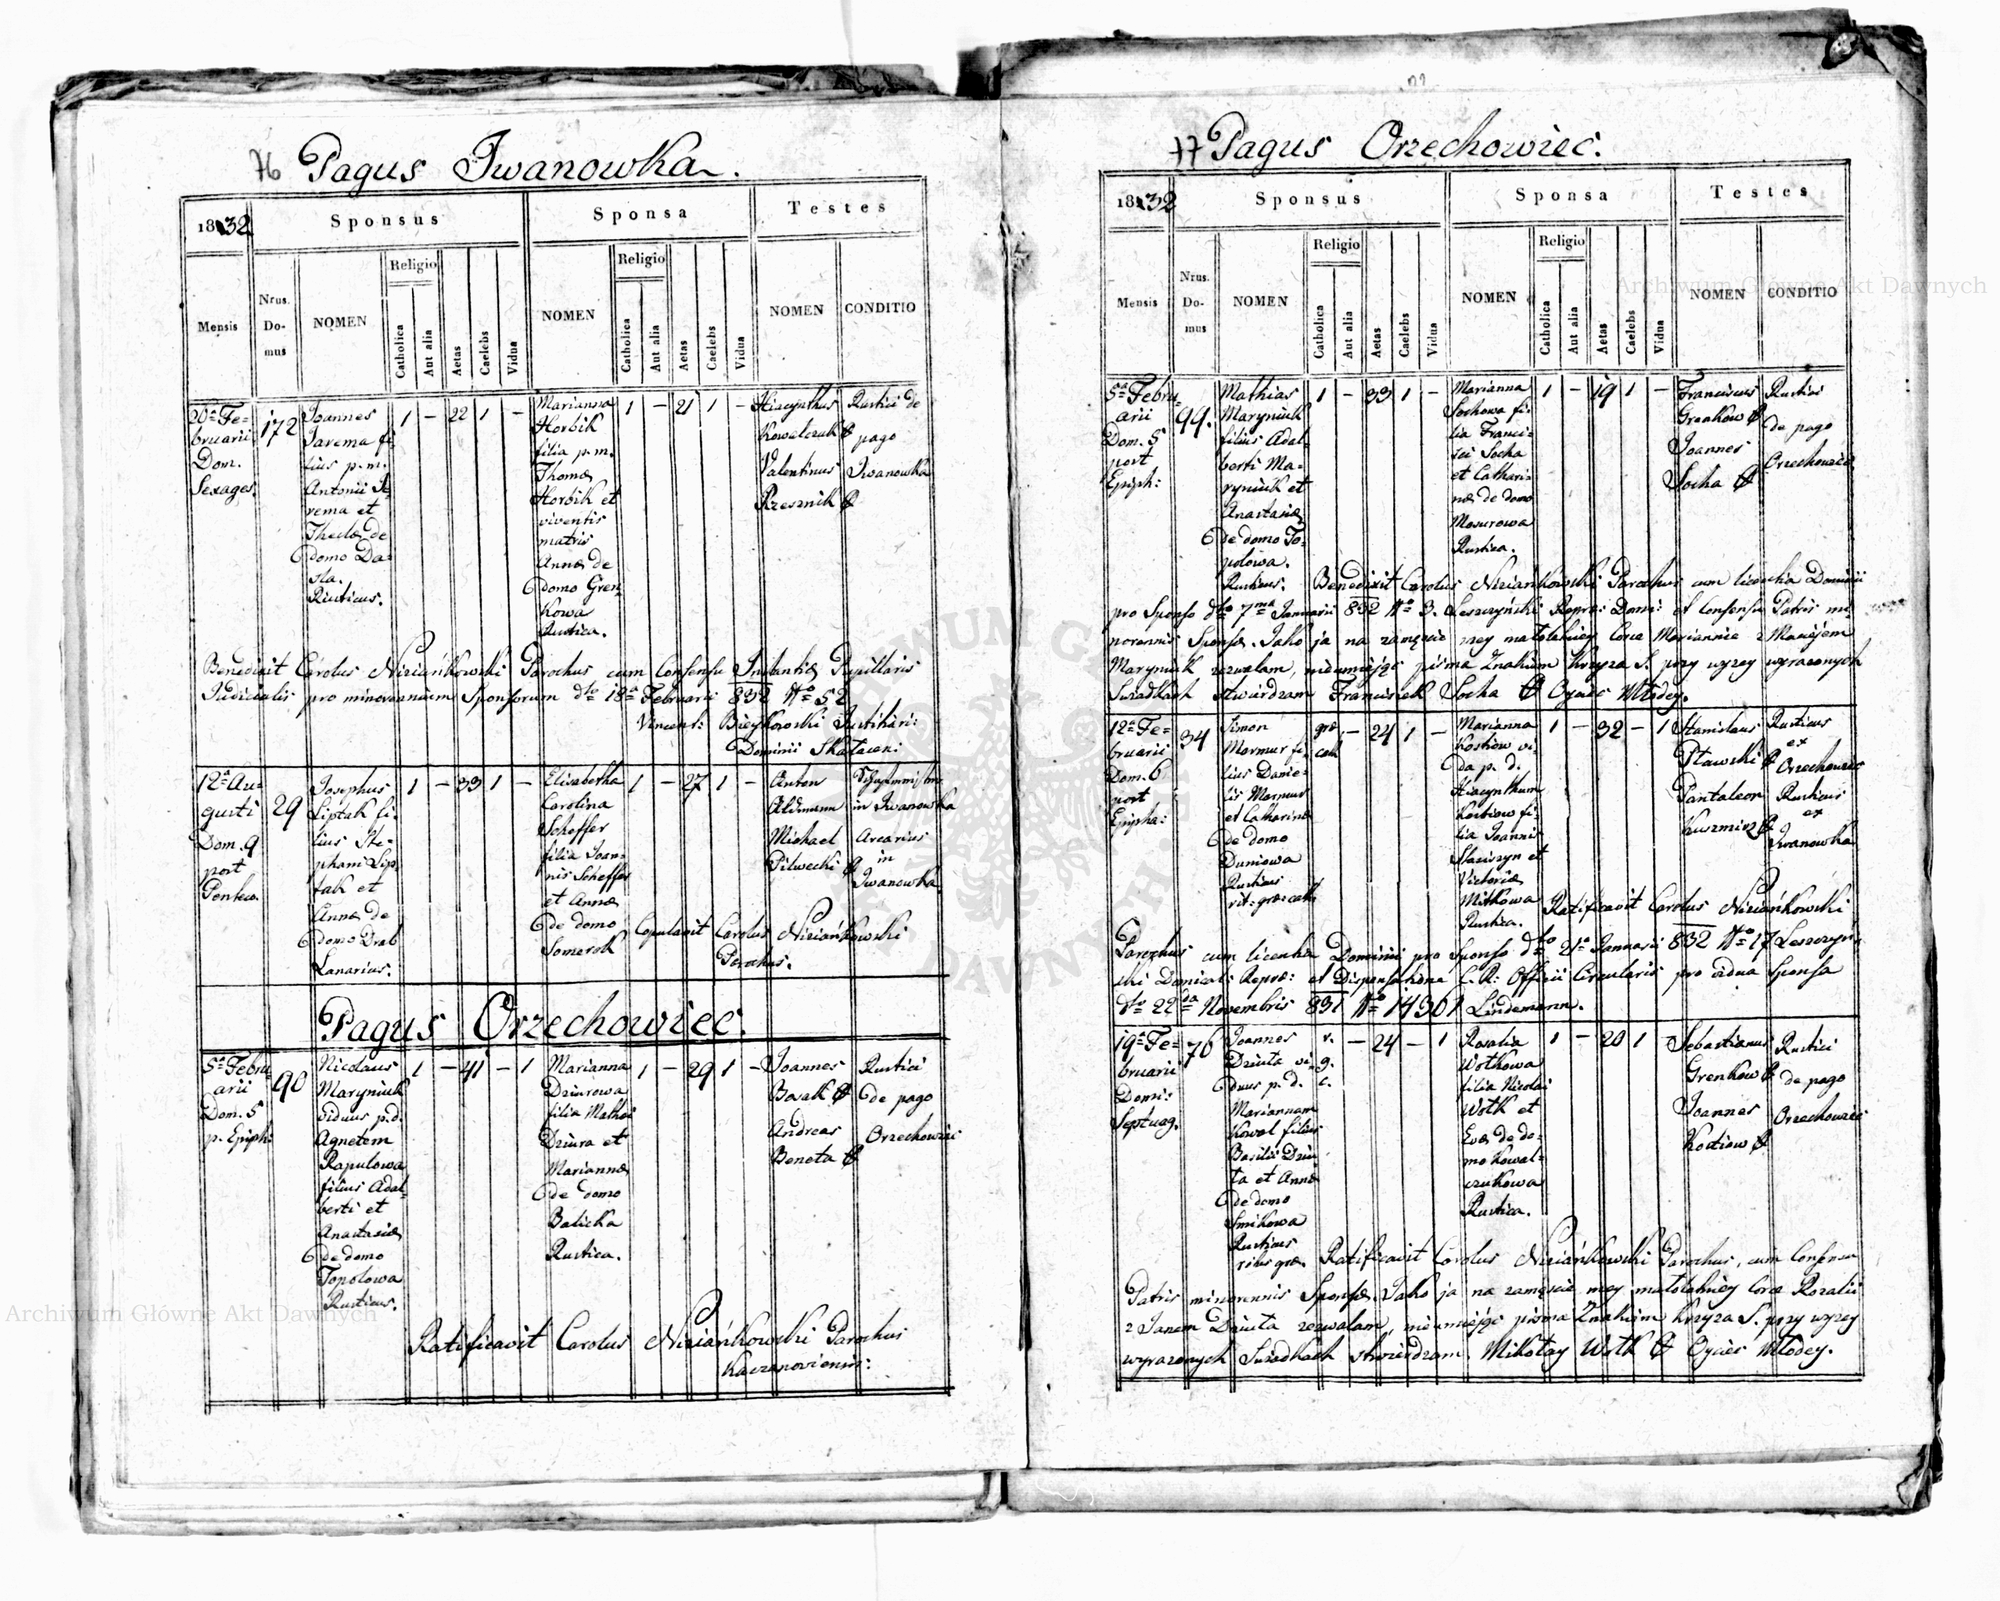 76 Pagus Iwanowka.
1832 Sponsus Sponsa Testes
Mensis Nrus. Domus NOMEN Religio Catholica Aut alia Aetas Caelebs Vidua NOMEN Religio Catholica Aut alia Aetas Caelebs Vidua NOMEN CONDITIO
20a Fe=
bruarii
Dom.
Sexages.
172
Joannes
Jarema fi
lius p. m.
Antonii Ja
rema et
Theclæ de
domo Da=
sta.
Rusticus.
1 - 22 1 -
Marianna
Horbik
filia p. m.
Thomæ
Horbik et
viventis
matris
Annæ de
domo Gren
kowa
Rustica.
1 - 21 1 -
Hiacynthus
Kowalczuk
Valentinus
Rzesznik
Rustici de
pago
Iwanowka
Benedixit Carolus Niziańkowski Parochus cum Consensu Instantiæ Pupillaris
Judicialis pro minorennium Sponsorum dto 18a Februarii 832 No 52
Vincent: Bieykowski Justitiari:
Dominii Skałacen:
12a Au=
gusti
Dom. 9
post
Pentec.
29
Josephus
Liptak fi=
lius Ste=
phani Lip
tak et
Annæ de
domo Drab
Lanarius.
1 - 33 1 -
Elisabetha
Carolina
Scheffer
filia Joan=
nis Scheffer
et Annæ
de domo
Somerok
1 - 27 1 -
Anton
Michael
Pilwecki
in Iwanowka
Arcarius
in
Iwanowka
Copulavit Carolus Niziańkowski
Parochus.
Pagus Orzechowiec.
5a Febru
arii
Dom. 5
p. Epiph:
90
Nicolaus
Maryniuk
viduus p. d.
Agnetem
Rapulowa
filius Adal
berti et
Anastasiæ
de domo
Topolowa
Rusticus.
1 - 41 - 1
Marianna
Dziurowa
filia Mathei
Dziura et
Mariannæ
de domo
Balicka
Rustica.
1 - 29 1 -
Joannes
Bosak
Andreas
Beneta
Rustici
de pago
Orzechowiec
Ratificavit Carolus Niziańkowski Parochus
Kaczanoviensis:
77 Pagus Orzechowiec.
1832 Sponsus Sponsa Testes
Mensis Nrus. Domus NOMEN Religio Catholica Aut alia Aetas Caelebs Vidua NOMEN Religio Catholica Aut alia Aetas Caelebs Vidua NOMEN CONDITIO
5a Febru=
arii
Dom. 5
post
Epiph:
99.
Mathias
Maryniuk
filius Adal
berti Ma=
ryniuk et
Anastasiæ
de domo To=
polowa.
Rusticus.
1 - 33 1 -
Marianna
Sochowa fi=
lia Franci=
sci Socha
et Cathari=
næ de domo
Mazurowa
Rustica.
1 - 19 1 -
Franciscus
Grenkow
Joannes
Socha
Rustici
de pago
Orzechowiec
Benedixit Carolus Niziańkowski Parochus cum licentia Dominii
pro Sponso dto 7ma Januarii 832 No 3. Leszczyński Repræ: Domi: et Consensu Patris mi=
norennis Sponsæ. Jako ja na zamęście mey małoletniey Córce Mariannie z Maciejem
Maryniuk zezwalam, nieumiejąc pisma Znakiem Krzyża S. przy wyzey wyrazonych
Swiadkach stwierdzam Franciszek Socha Oyciec Młodey.
12a Fe=
bruarii
Dom. 6
post
Epipha:
34
Simon
Marmur fi=
lius Danie=
lis Marmur
et Catharinæ
de domo
Duniowa
Rusticus
rit: græ: cath:
græ
cath 1 - 24 1 -
Marianna
Kostiow vi
da p. d.
Hiacynthum
Kostiow fi=
lia Joannis
Stasiszyn et
Victoriæ
Mitkowa
Rustica.
1 - 32 - 1
Stanislaus
Pławski
Pantaleon
Kuzmicz
Rusticus
ex
Orzechowiec
Rusticus
ex
Iwanowka
Ratificavit Carolus Niziańkowski
Parochus cum licentia Dominii pro Sponso dto 21a Januarii 832 No 17 Leszczyń=
ski Dominical: Repræ: et Dispensatione C. R: Officii Circularis pro vidua Sponsa
dto 22da Novembris 831 No 14361 Lindemann.
19a Fe=
bruarii
Domi:
Septuag.
76
Joannes
Dziuta vi=
duus p. d.
Mariannam
Kowal filius
Basilii Dziu
ta et Annæ
de domo
Smikowa
Rusticus
ritus græ.
r.
g.
c. - 24 - 1
Rosalia
Wotkowa
filia Nicolai
Wotk et
Evæ de do=
mo Kowal=
czukowa
Rustica.
1 - 20 1 -
Sebastianus
Grenkow
Joannes
Kostiow
Rustici
de pago
Orzechowiec
Ratificavit Carolus Niziańkowski Parochus, cum Consensu
Patris minorennis Sponsæ. Jako ja na zamęście mey małoletniey Córce Rozalii
z Janem Dziuta zezwalam, nieumiejąc pisma Znakiem Krzyża S. przy wyzey
wyrazonych Swiadkach stwierdzam. Mikołay Wotk Oyciec Młodey.
Archiwum Główne Akt Dawnych
Archiwum Główne Akt Dawnych